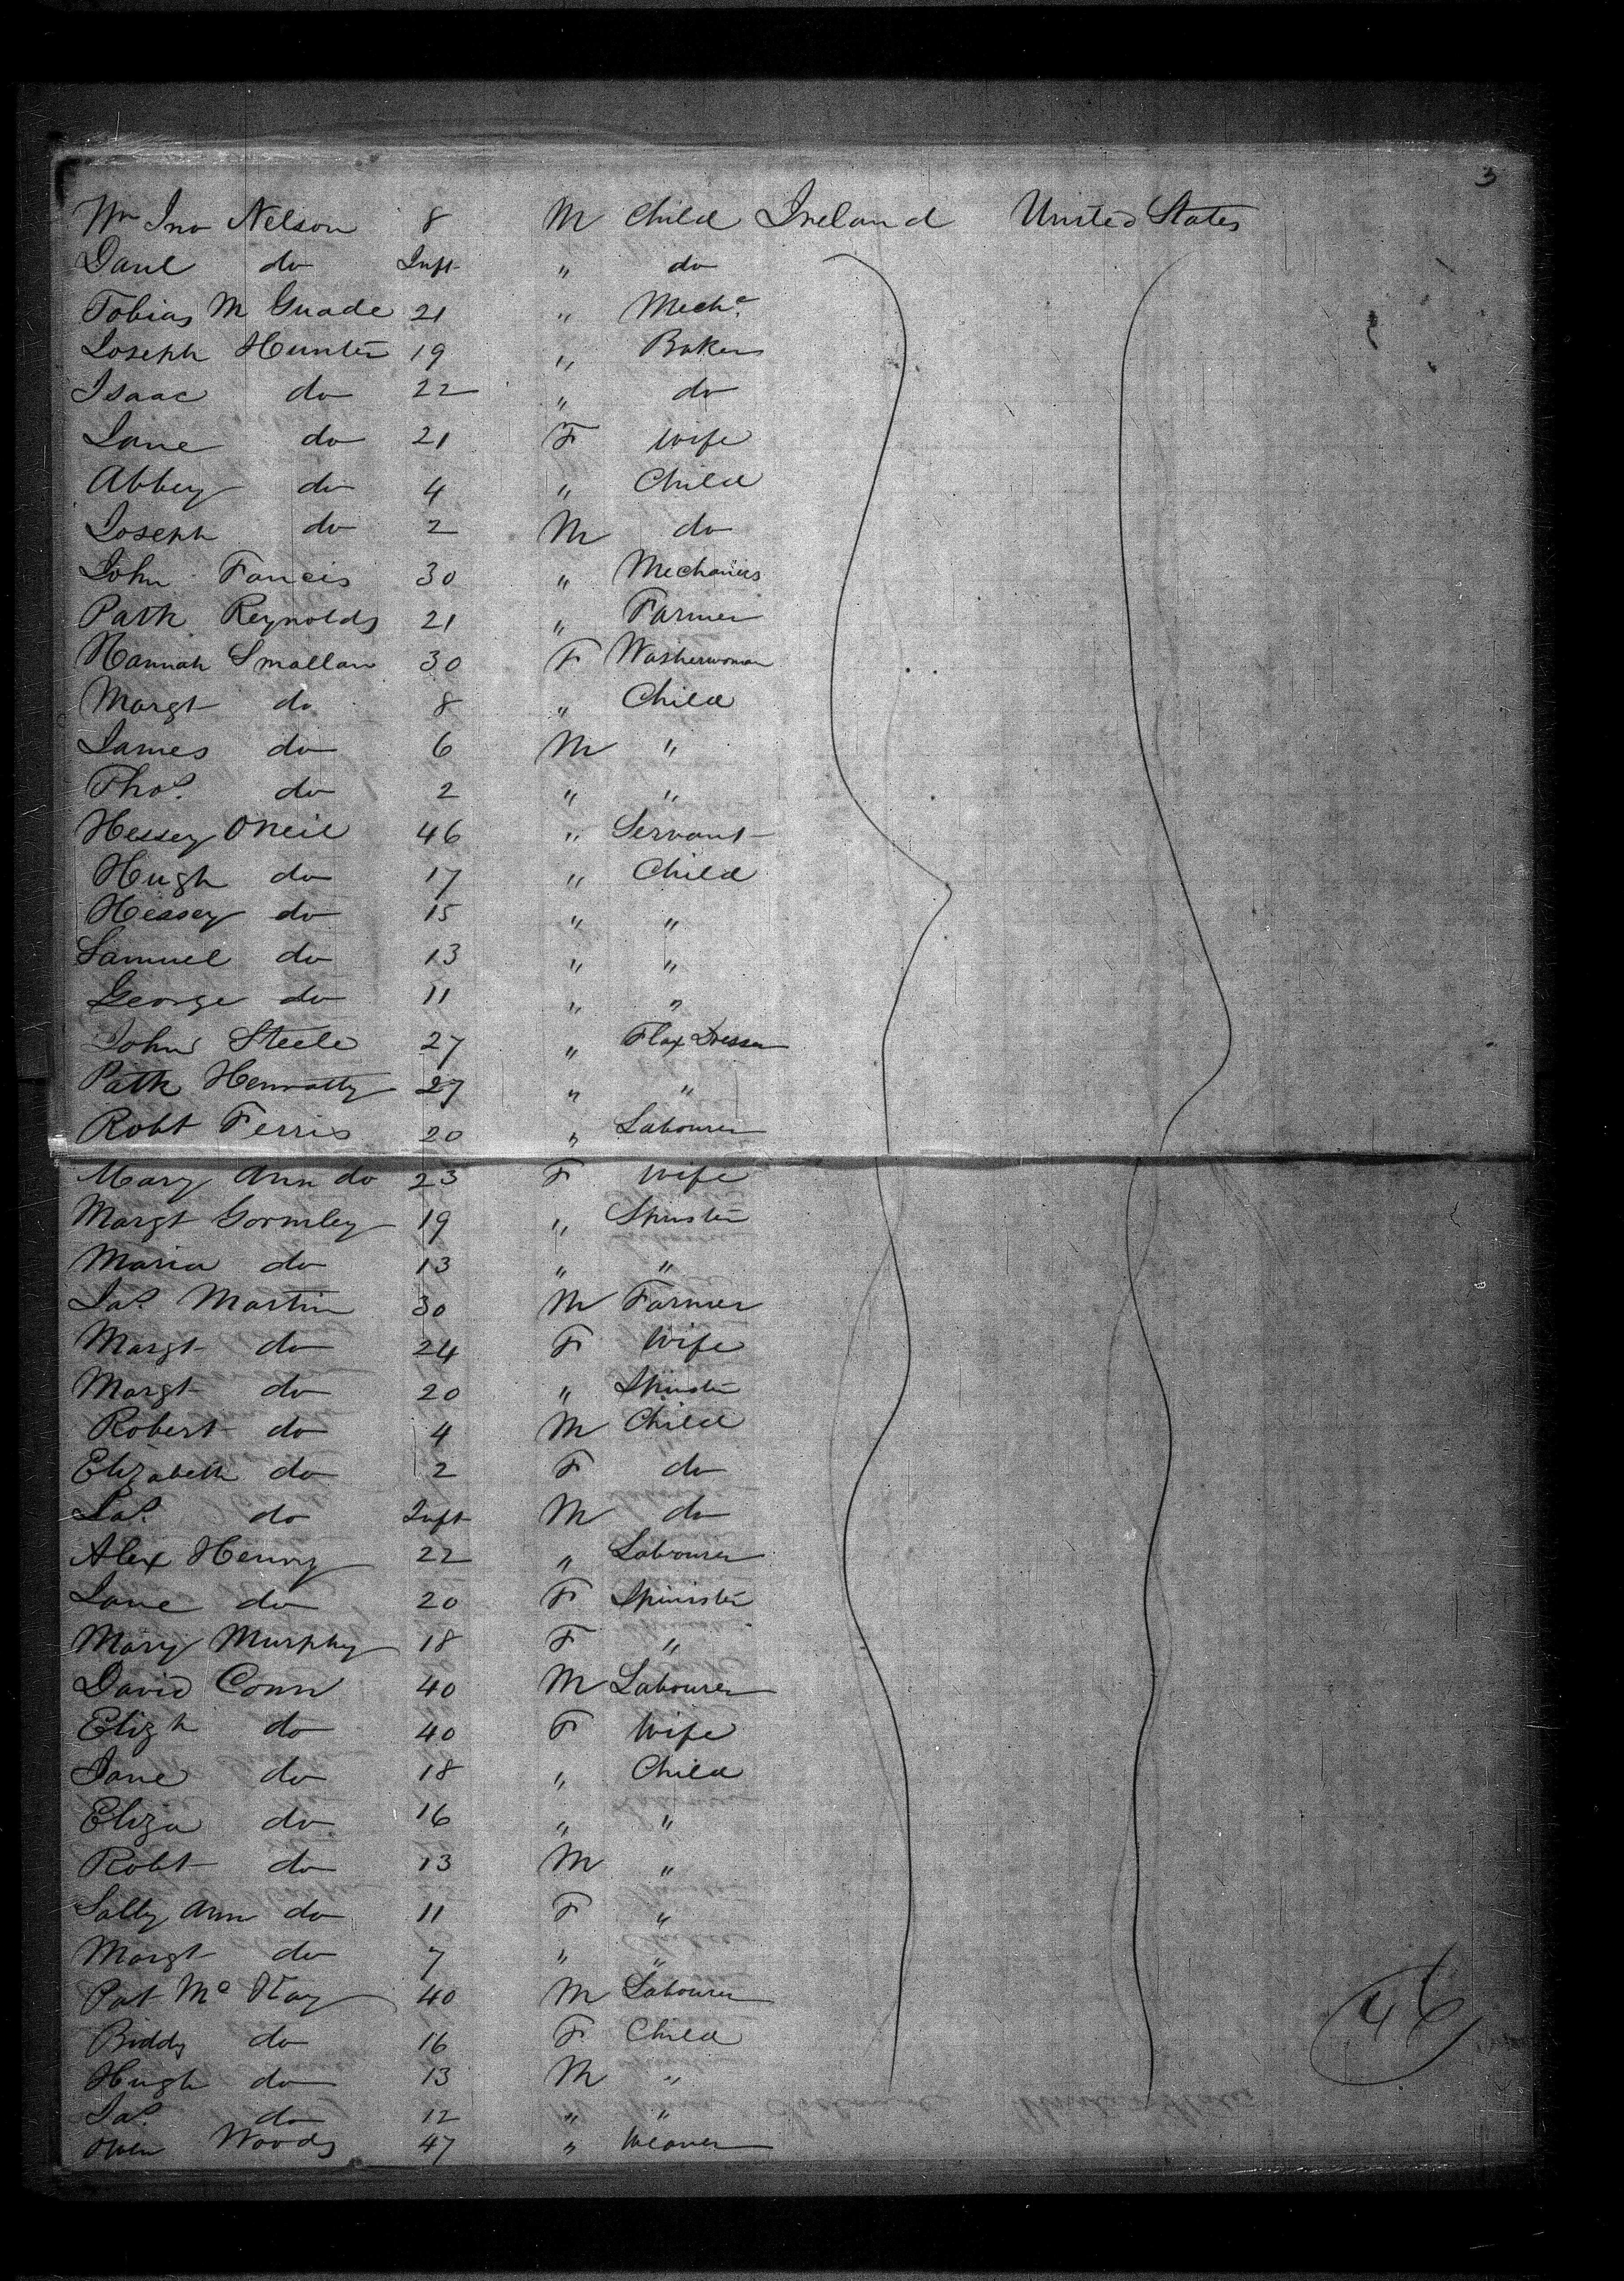 3
Wm Jno Nelson 8 M Child Ireland United States
Danl do Inft " do
Tobias M Guade 21 " Mechc
Joseph Hunter 19 " Baker
Isaac do 22 " do
Jane do 21 F Wife
Abbey do 4 " Child
Joseph do 2 M do
John Fancis 30 " Mechanics
Patk Reynolds 21 " Farmer
Hannah Smallan 30 F Washerwoman
Margt do 8 " Child
James do 6 M "
Thos. do 2 " "
Hessey ONeil 46 " Servant
Hugh do 17 " Child
Hessey do 15 " "
Samuel do 13 " "
George do 11 " "
John Steele 27 " Flax Dresser
Patk Henratty 27 " "
Robt Ferris 20 " Labourer
Mary Ann do 23 F Wife
Margt Gormley 19 " Spinster
Maria do 13 " "
Jas. Martin 30 M Farmer
Margt do 24 F Wife
Margt do 20 " Spinster
Robert do 4 M Child
Elizabeth do 2 F do
Jas. do Inft M do
Alex Henry 22 " Labourer
Jane do 20 F Spinister
Mary Murphy 18 F "
David Conn 40 M Labourer
Elizh do 40 F Wife
Jane do 18 " Child
Eliza do 16 " "
Robt do 13 M "
Sally Ann do 11 F "
Margt do 7 " "
Pat Mc Kay 40 M Labourer
Biddy do 16 F Child
Hugh do 13 M "
Jas. do 12 " "
Owen Woods 47 " Weaver
46